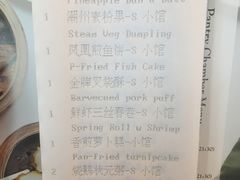 Pineapple Bun w Butt
1 潮州素粉果-S 小馆
Steam Veg Dumpling
1 凤凰煎鱼饼-S 小馆
P-Fried Fish Cake
1 金牌叉烧酥-S 小馆
Barvecued pork puff
1 鲜虾三丝春卷-S 小馆
Spring Roll w Shrimp
1 香煎萝卜糕-小馆
Pan-fried turnipcake
2 -S 小馆
Pantry Chamber Menu